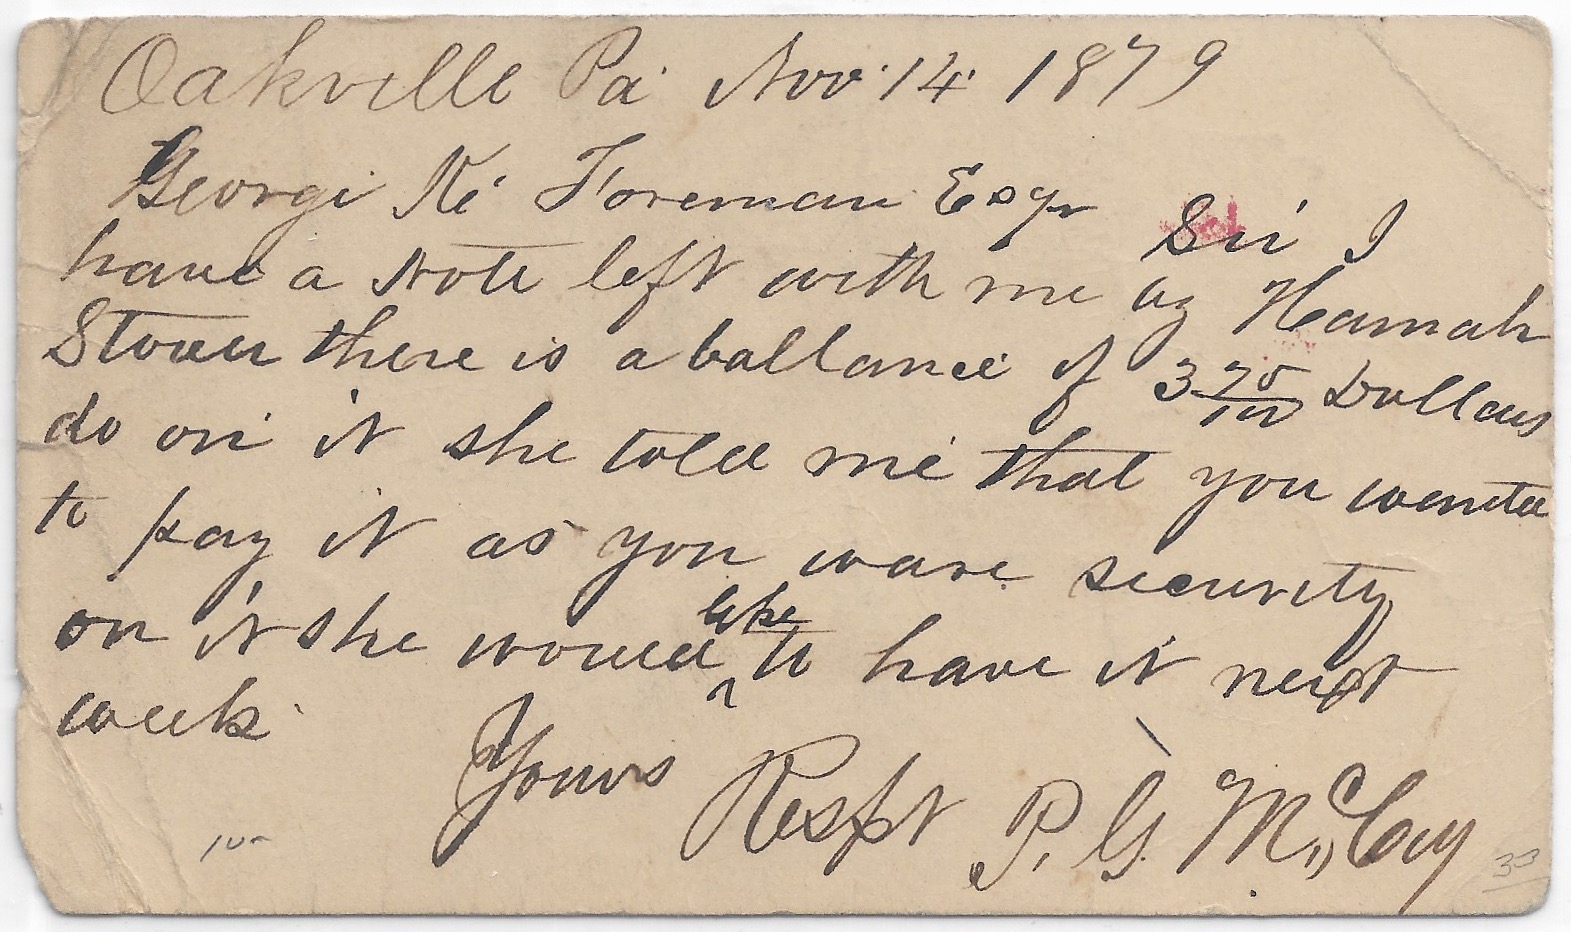 Oakville Pa Nov. 14 1879
George K Foreman Esqr Sir I
have a Note left with me by Hannah
Stover there is a ballance of 3 75/100 Dollars
do on it she told me that you wanted
to pay it as you ware security
on it she would like to have it next
week.
Yours Respt P. G. McCoy
10-
33